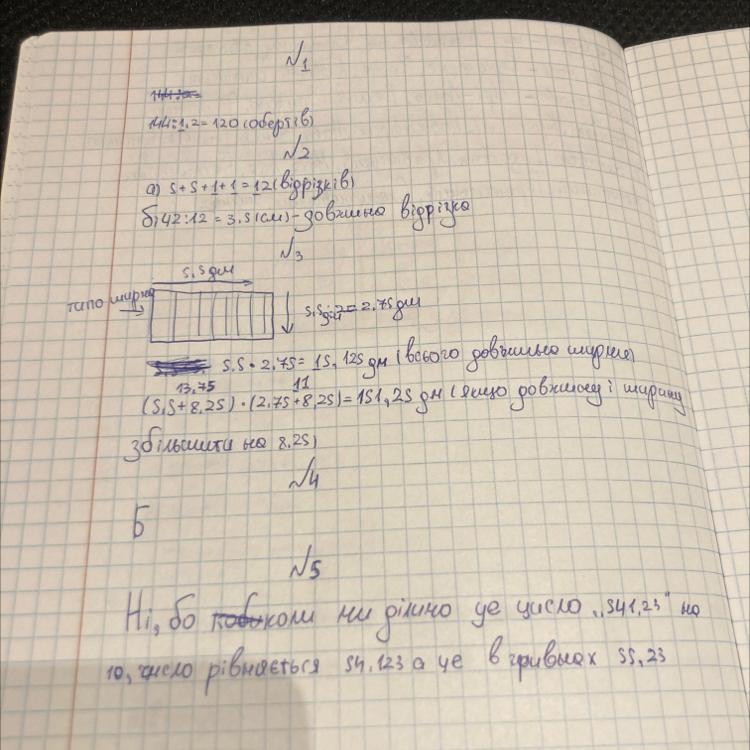 №1
144:1,2=120 (обертів)
№2
а) 5+5+1+1=12 (відрізків)
б) 42:12=3,5 (см) - довжина відрізка
№3
5,5 дм
типо ширма
5,5:2=2,75 дм
дм
5,5·2,75=15,125 дм (всього довжильна ширме)
13,75 11
(5,5+8,25)·(2,75+8,25)=151,25 дм (якщо довжину і ширину
збільшити на 8,25)
№4
Б
№5
Ні, бо коли ми ділимо це число „541,23" на
10, число рівняється 54,123 а це в гривнах 55,23